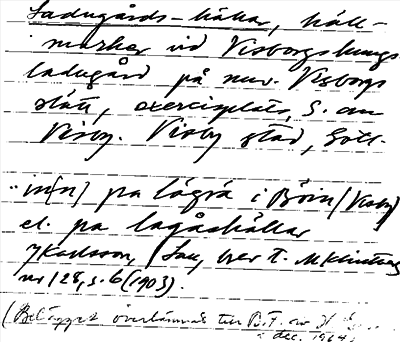 Ladugårds-hällar, häll-
marker vid Visborgs kungs-
ladugård på nuv. Visborgs
slätt, exercisplats, S. om
Visby. Visby stad, Gotl.
in[n] pa lågrá i Börin/Visby
el. pa lagåshällar
/Karlsson, brev t. M. Klintberg
nr 128, s. 6 (1903).
(Belägget överlämnat till av
dec. 1964.